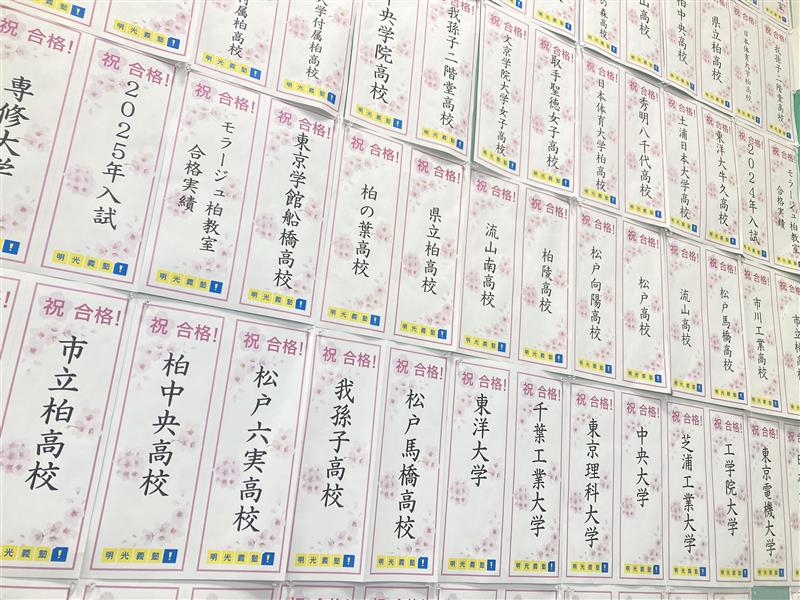 大学付属柏高校
祝 合格!
中央学院高校
明光義塾!
我孫子二階堂高校
明光義塾!
文京学院大学女子高校
明光義塾!
祝 合格!
取手聖徳女子高校
明光義塾!
祝 合格!
日本体育大学柏高校
明光義塾!
祝 合格!
秀明八千代高校
明光義塾!
祝 合格!
土浦日本大学高校
祝 合格!
東洋大牛久高校
祝 合格!
2024年入試
祝 合格!
モラージュ柏教室
合格実績
の森高校
流山高校
柏中央高校
県立柏高校
日本体育大学柏高校
我孫子二階堂高校
専修大学
祝 合格!
2025年入試
明光義塾!
祝 合格!
モラージュ柏教室
合格実績
明光義塾!
祝 合格!
東京学館船橋高校
明光義塾!
祝 合格!
柏の葉高校
明光義塾!
祝 合格!
県立柏高校
明光義塾!
祝 合格!
流山南高校
明光義塾!
祝 合格!
柏陵高校
明光義塾!
祝 合格!
松戸向陽高校
明光義塾!
祝 合格!
松戸高校
明光義塾!
祝 合格!
流山高校
明光義塾!
祝 合格!
松戸馬橋高校
明光義塾!
祝 合格!
市川工業高校
明光義塾!
祝 合格!
市立柏高校
明光義塾!
祝 合格!
柏中央高校
明光義塾!
祝 合格!
松戸六実高校
明光義塾!
祝 合格!
我孫子高校
明光義塾!
祝 合格!
松戸馬橋高校
明光義塾!
祝 合格!
東洋大学
明光義塾!
祝 合格!
千葉工業大学
明光義塾!
祝 合格!
東京理科大学
明光義塾!
祝 合格!
中央大学
明光義塾!
祝 合格!
芝浦工業大学
明光義塾!
祝 合格!
工学院大学
明光義塾!
祝 合格!
東京電機大学
明光義塾!